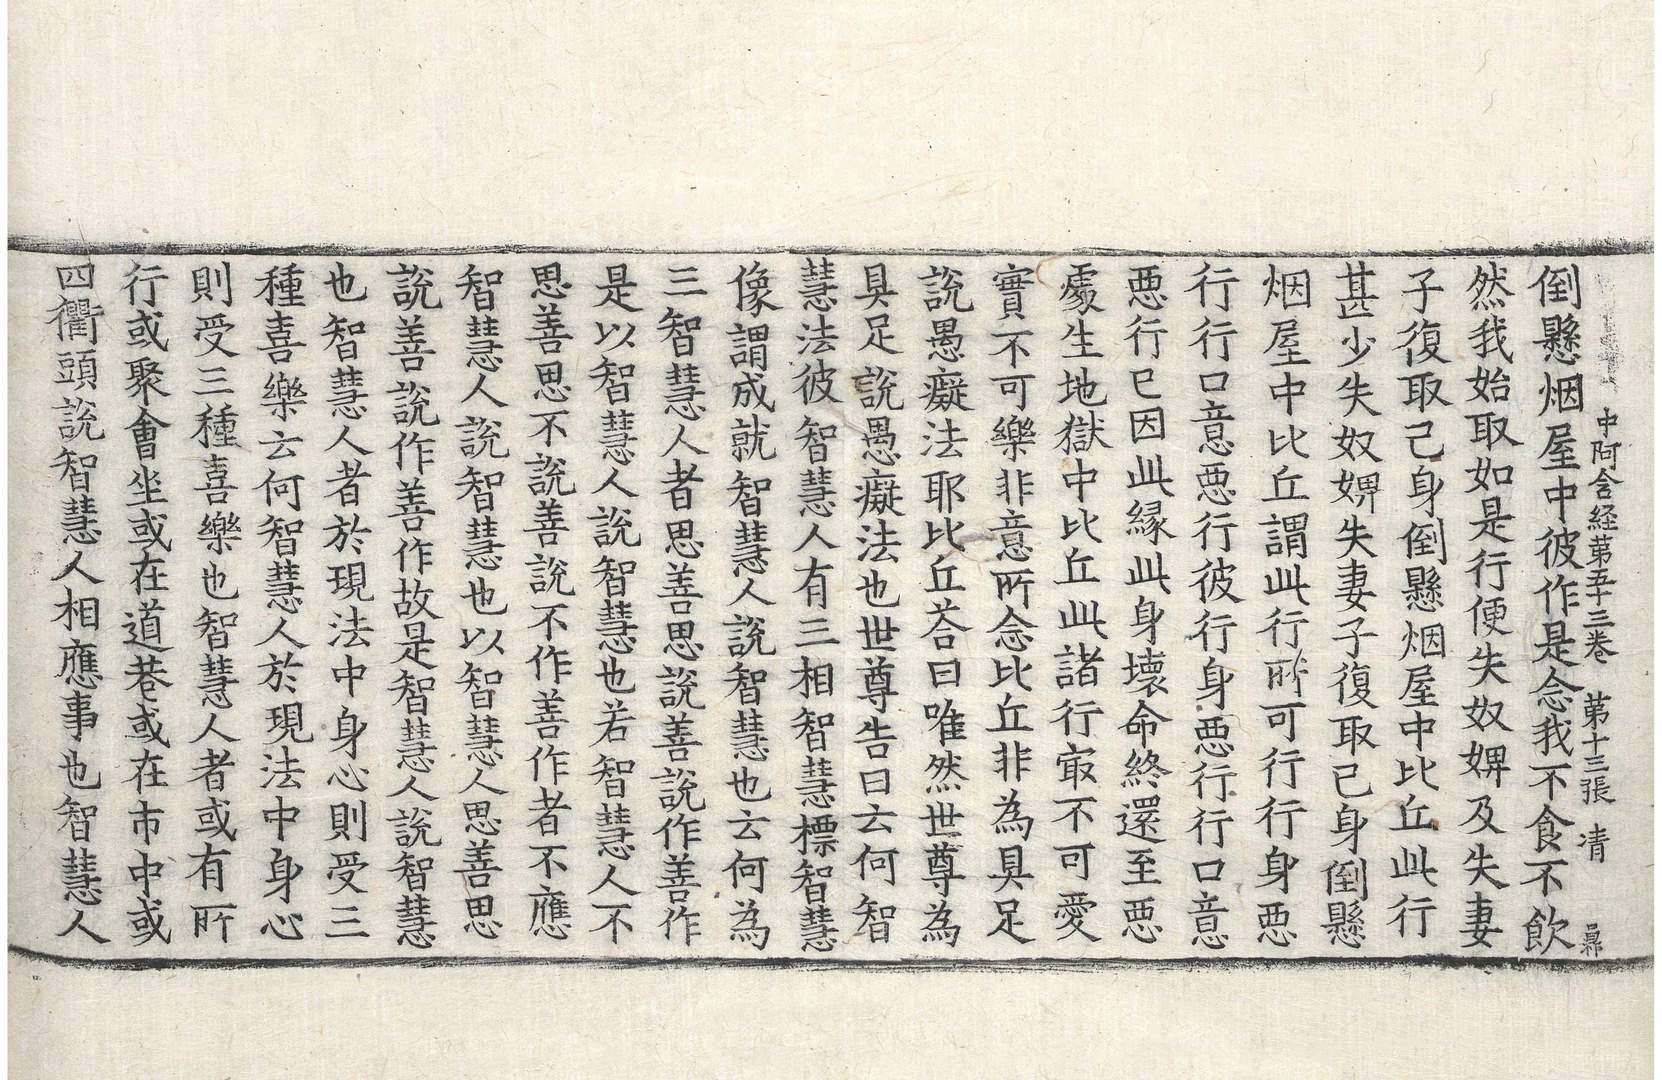 中阿含経苐五十三卷 苐十三張 清
倒懸烟屋中彼作是念我不食不飲
然我始取如是行便失奴婢及失妻
子復取己身倒懸烟屋中比丘此行
甚少失奴婢失妻子復取己身倒懸
烟屋中比丘謂此行所可行行身惡
行行口意惡行彼行身惡行行口意
惡行已因此縁此身壞命終還至惡
處生地獄中比丘此諸行㝡不可愛
實不可樂非意所念比丘非為具足
說愚癡法耶比丘荅曰唯然世尊為
具足說愚癡法也世尊告曰云何智
慧法彼智慧人有三相智慧標智慧
像謂成就智慧人說智慧也云何為
三智慧人者思善思說善說作善作
是以智慧人說智慧也若智慧人不
思善思不說善說不作善作者不應
智慧人說智慧也以智慧人思善思
說善說作善作故是智慧人說智慧
也智慧人者於現法中身心則受三
種喜樂云何智慧人於現法中身心
則受三種喜樂也智慧人者或有所
行或聚會坐或在道巷或在市中或
四衢頭說智慧人相應事也智慧人